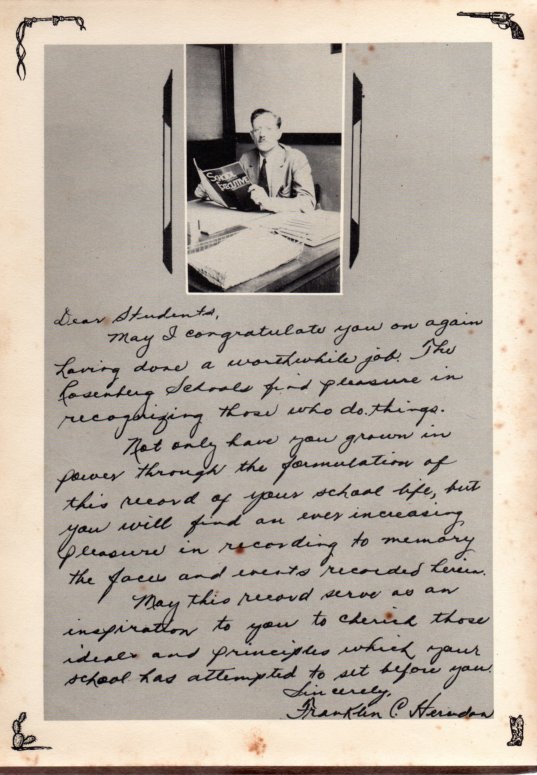 SCHOOL
EXECUTIVE
Dear Students,
May I congratulate you on again
having done a worthwhile job. The
Rosenberg Schools find pleasure in
recognizing those who do things.
Not only have you grown in
power through the formulation of
this record of your school life, but
you will find an ever increasing
pleasure in recording to memory
the faces and events recorded herein.
May this record serve as an
inspiration to you to cherish those
ideals and principles which your
school has attempted to set before you.
Sincerely,
Franklin C. Herndon